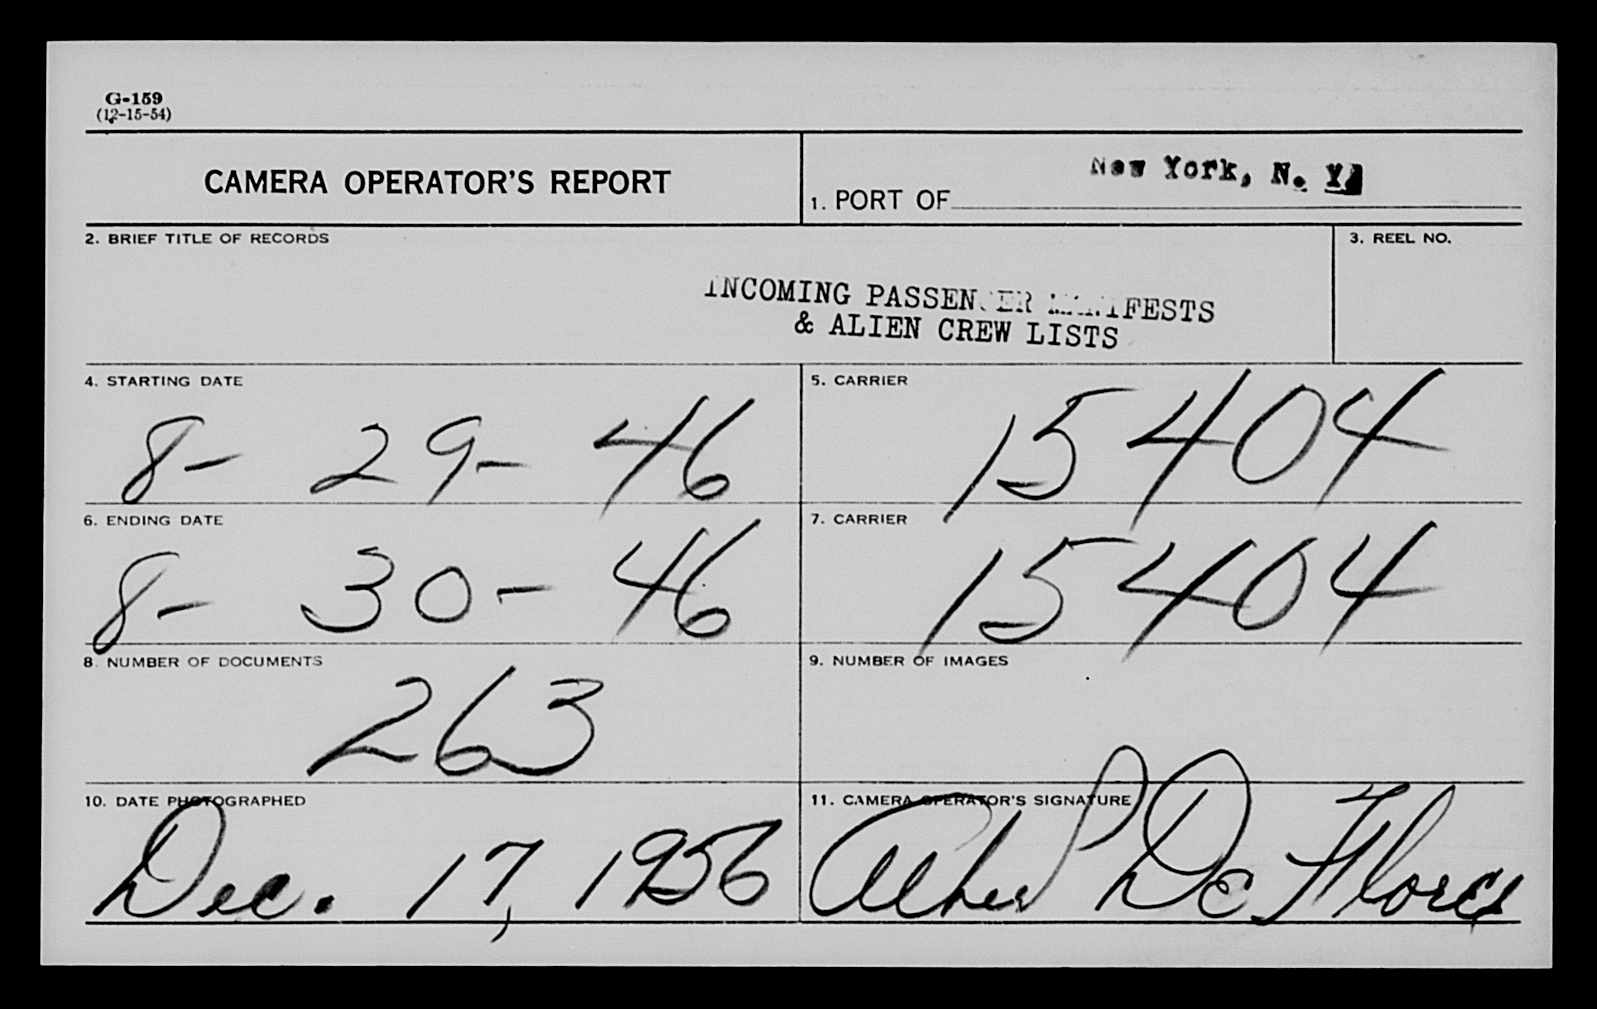 G-159
(12-15-54)
CAMERA OPERATOR'S REPORT
1. PORT OF New York, N. Y.
2. BRIEF TITLE OF RECORDS
INCOMING PASSENGER MANIFESTS
& ALIEN CREW LISTS
3. REEL NO.
4. STARTING DATE
8- 29- 46
5. CARRIER
15404
6. ENDING DATE
8- 30- 46
7. CARRIER
15404
8. NUMBER OF DOCUMENTS
263
9. NUMBER OF IMAGES
10. DATE PHOTOGRAPHED
Dec. 17, 1956
11. CAMERA OPERATOR'S SIGNATURE
De Flores